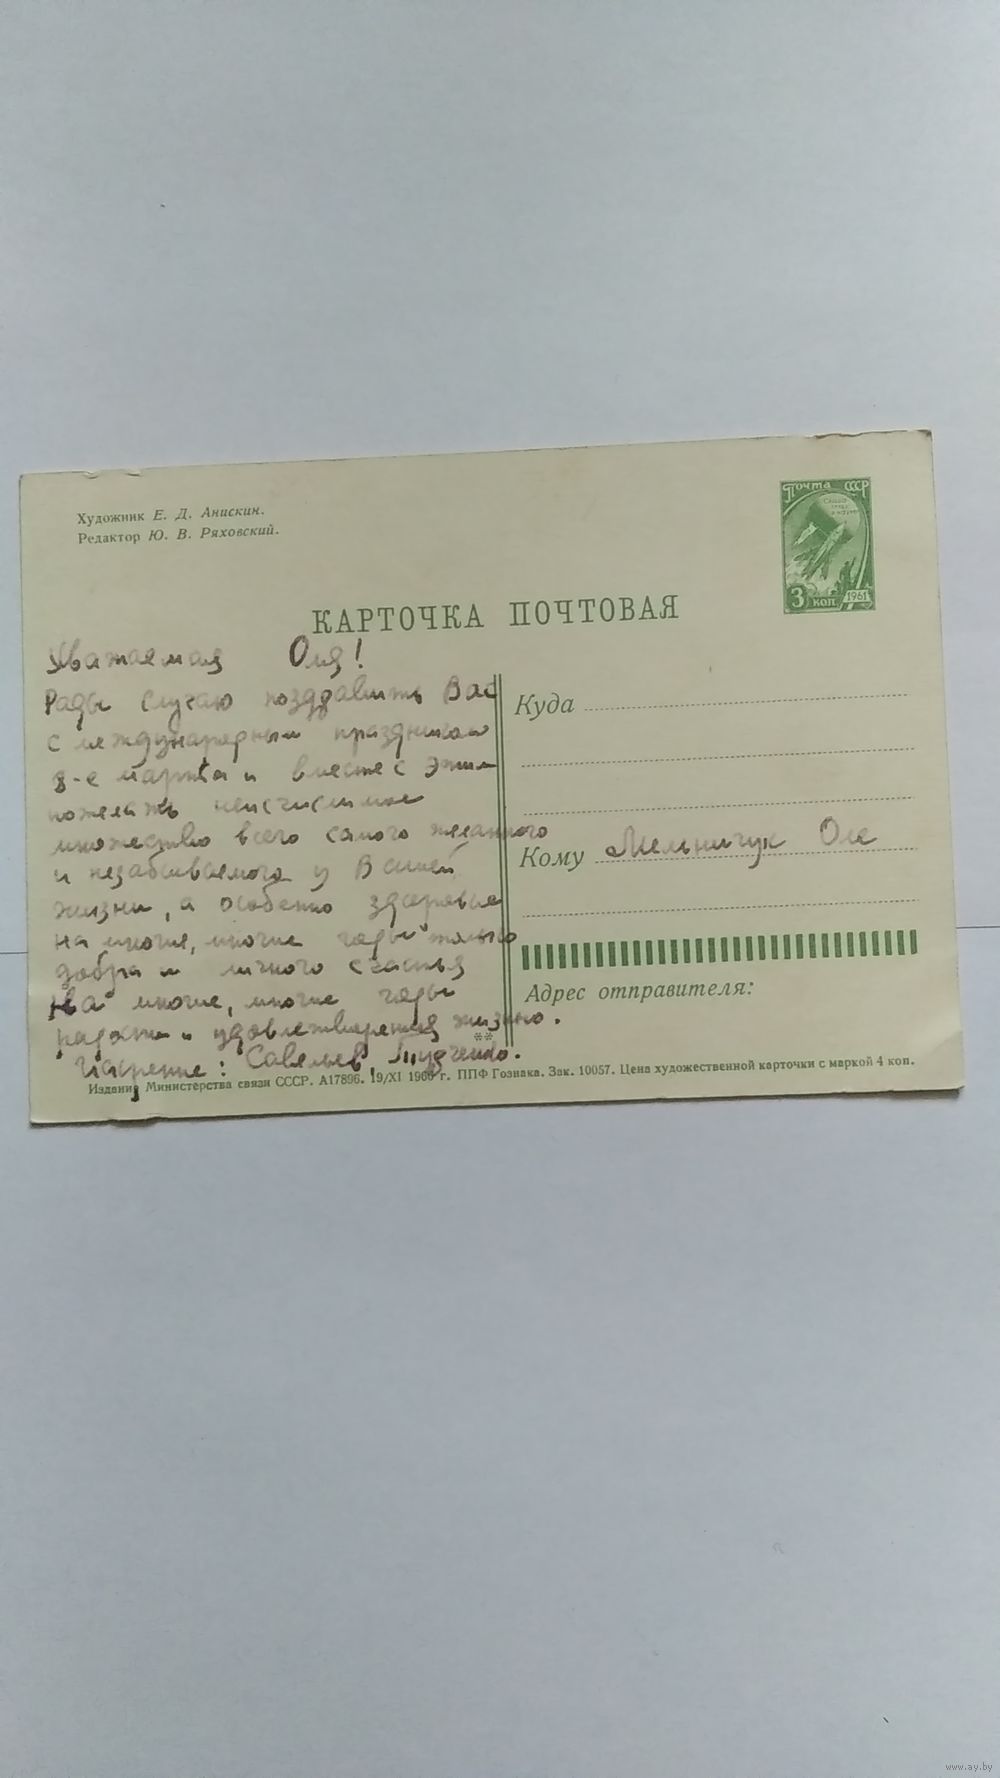 Художник Е. Д. Анискин.
Редактор Ю. В. Ряховский.
Почта СССР
3 коп 1961
КАРТОЧКА ПОЧТОВАЯ
Уважаемая Оля!
Рады случаю поздравить Вас
с международным праздником
8-е марта и вместе с этим
пожелать неисчислимое
множество всего самого желанного
и незабываемого у Вашей
жизни, а особенно здоровье
на многие, многие годы только
добра и личного счастья
на многие, многие годы
радости и удовлетворения жизнью.
Искренне: Савельев,
Куда
Кому Мельничук Оле
Адрес отправителя:
**
Издание Министерства связи СССР. А17896. 19/XI 1966 г. ППФ Гознака. Зак. 10057. Цена художественной карточки с маркой 4 коп.
www.ay.by